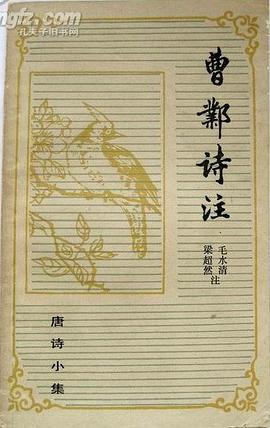 ngfz.com
孔夫子旧书网
曹鄴诗注
毛水清
梁超然
注
唐诗小集